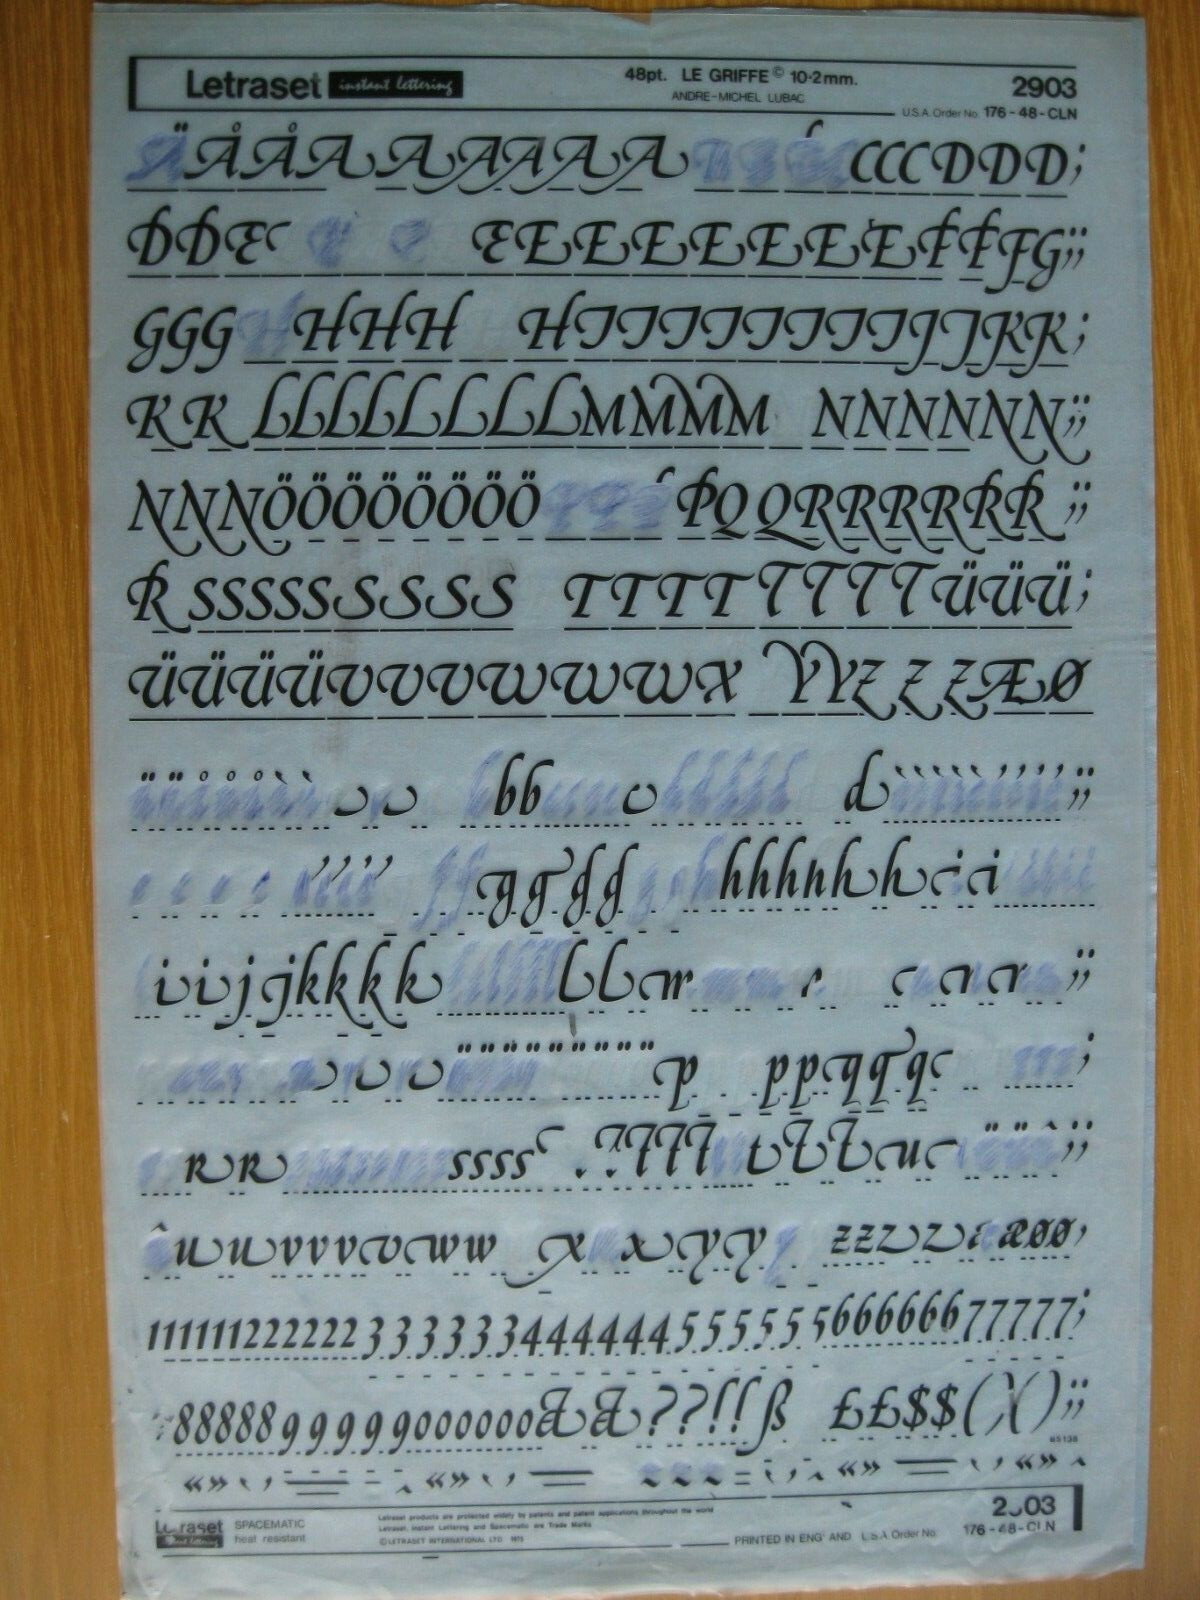 Letraset instant lettering 48pt. LE GRIFFE © 10·2mm. 2903
ANDRE-MICHEL LUBAC
U.S.A. Order No. 176-48-CLN
Ä Å Å A A A A A A C C C D D D ;
D D E E E E E E E E E F F F G ;;
G G G H H H H I I I I I I I I I J J K K ;
K K L L L L L L L L M M M M N N N N N N ;;
N N N Ö Ö Ö Ö Ö Ö Ö Ö P Q Q R R R R R R ;;
R S S S S S S S S S T T T T T T T T Ü Ü Ü ;
Ü Ü Ü Ü V V V W W W X Y Y Z Z Z Æ Ø
b b d ;;
g g g g h h h h h h i i
i i j j k k k k l l ;;
p p p q q q ;
R R s s s s t t t u ;;
u u v v v v w w x x y y z z z z æ ø ø ;
1 1 1 1 1 1 2 2 2 2 2 2 3 3 3 3 3 3 4 4 4 4 4 4 5 5 5 5 5 5 6 6 6 6 6 6 7 7 7 7 7 ;
8 8 8 8 8 9 9 9 9 9 0 0 0 0 0 0 & & ? ? ! ! ß £ £ $ $ ( ) ( ) ;;
85138
Letraset SPACEMATIC heat resistant
Letraset products are protected widely by patents and patent applications throughout the world
Letraset, Instant Lettering and Spacematic are Trade Marks
© LETRASET INTERNATIONAL LTD 1975
PRINTED IN ENG AND U.S.A Order No. 176-48-CLN
2 03